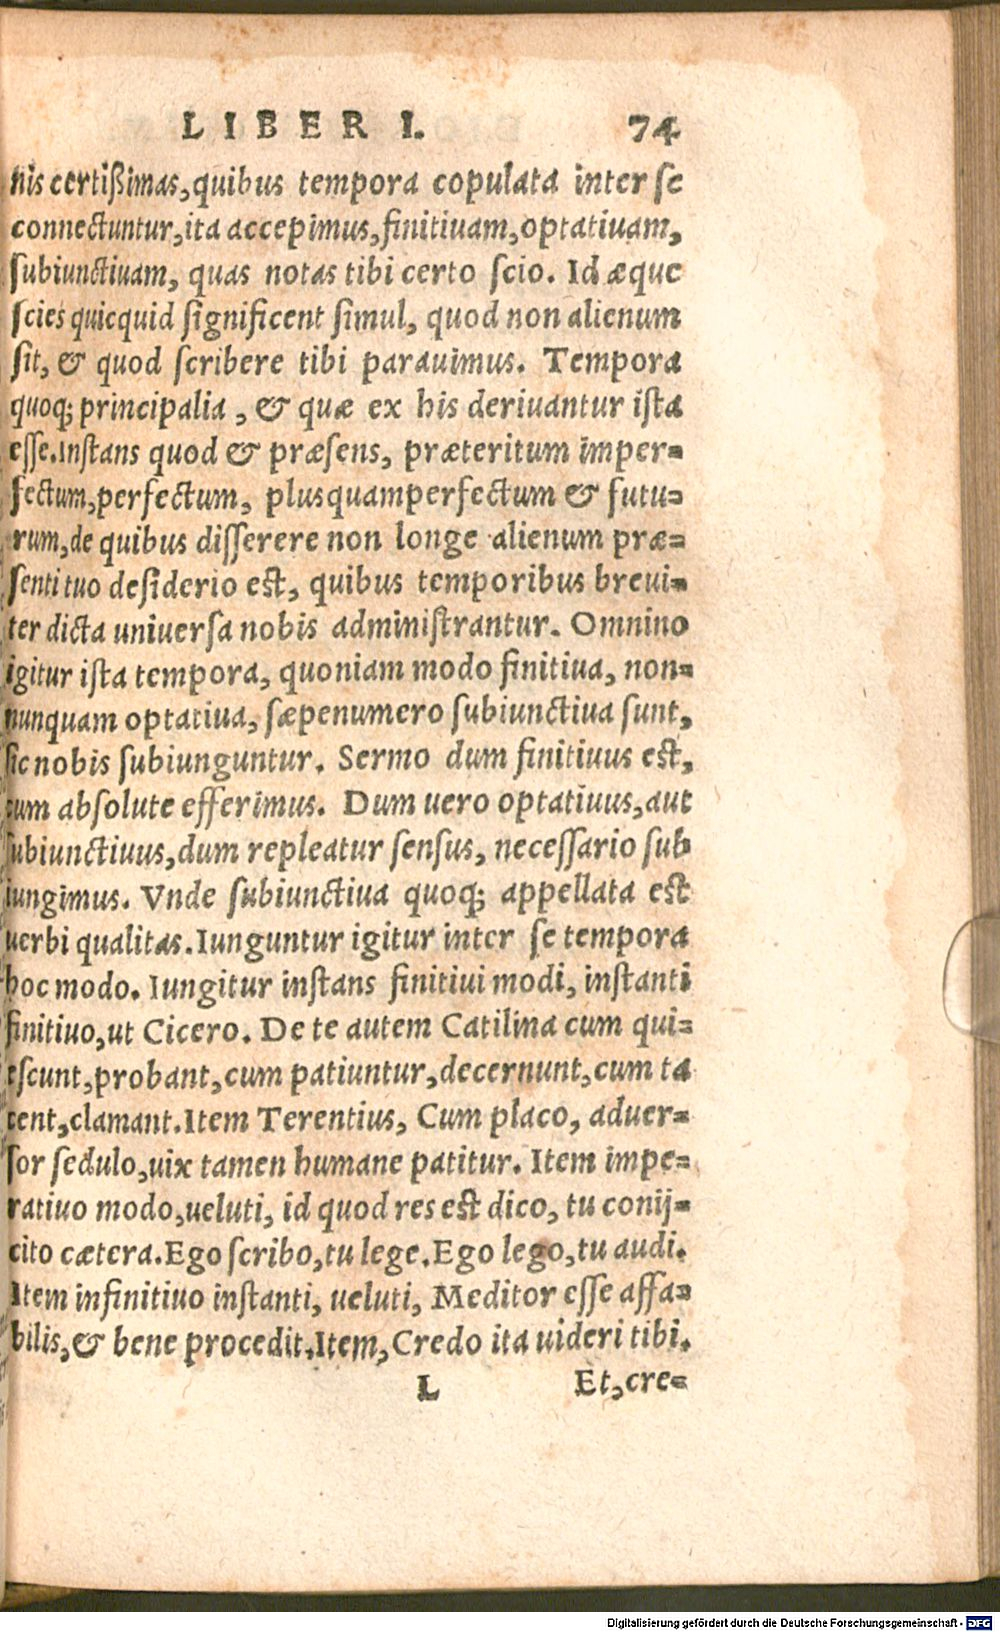 LIBER I. 74
nis certißimas, quibus tempora copulata inter se
connectuntur, ita accepimus, finitiuam, optatiuam,
subiunctiuam, quas notas tibi certo scio. Id æque
scies quicquid significent simul, quod non alienum
sit, & quod scribere tibi parauimus. Tempora
quoq; principalia, & quæ ex his deriuantur ista
esse. Instans quod & præsens, præteritum imper-
fectum, perfectum, plusquamperfectum & futu-
rum, de quibus disserere non longe alienum præ-
senti tuo desiderio est, quibus temporibus breui-
ter dicta uniuersa nobis administrantur. Omnino
igitur ista tempora, quoniam modo finitiua, non-
nunquam optatiua, sæpenumero subiunctiua sunt,
sic nobis subiunguntur. Sermo dum finitiuus est,
cum absolute efferimus. Dum uero optatiuus, aut
subiunctiuus, dum repleatur sensus, necessario sub
iungimus. Vnde subiunctiua quoq; appellata est
uerbi qualitas. Iunguntur igitur inter se tempora
hoc modo. Iungitur instans finitiui modi, instanti
finitiuo, ut Cicero. De te autem Catilina cum qui-
escunt, probant, cum patiuntur, decernunt, cum ta
cent, clamant. Item Terentius, Cum placo, aduer-
sor sedulo, uix tamen humane patitur. Item impe-
ratiuo modo, ueluti, id quod res est dico, tu conij-
cito cætera. Ego scribo, tu lege. Ego lego, tu audi.
Item infinitiuo instanti, ueluti, Meditor esse affa-
bilis, & bene procedit. Item, Credo ita uideri tibi.
L Et, cre-
Digitalisierung gefördert durch die Deutsche Forschungsgemeinschaft - DFG